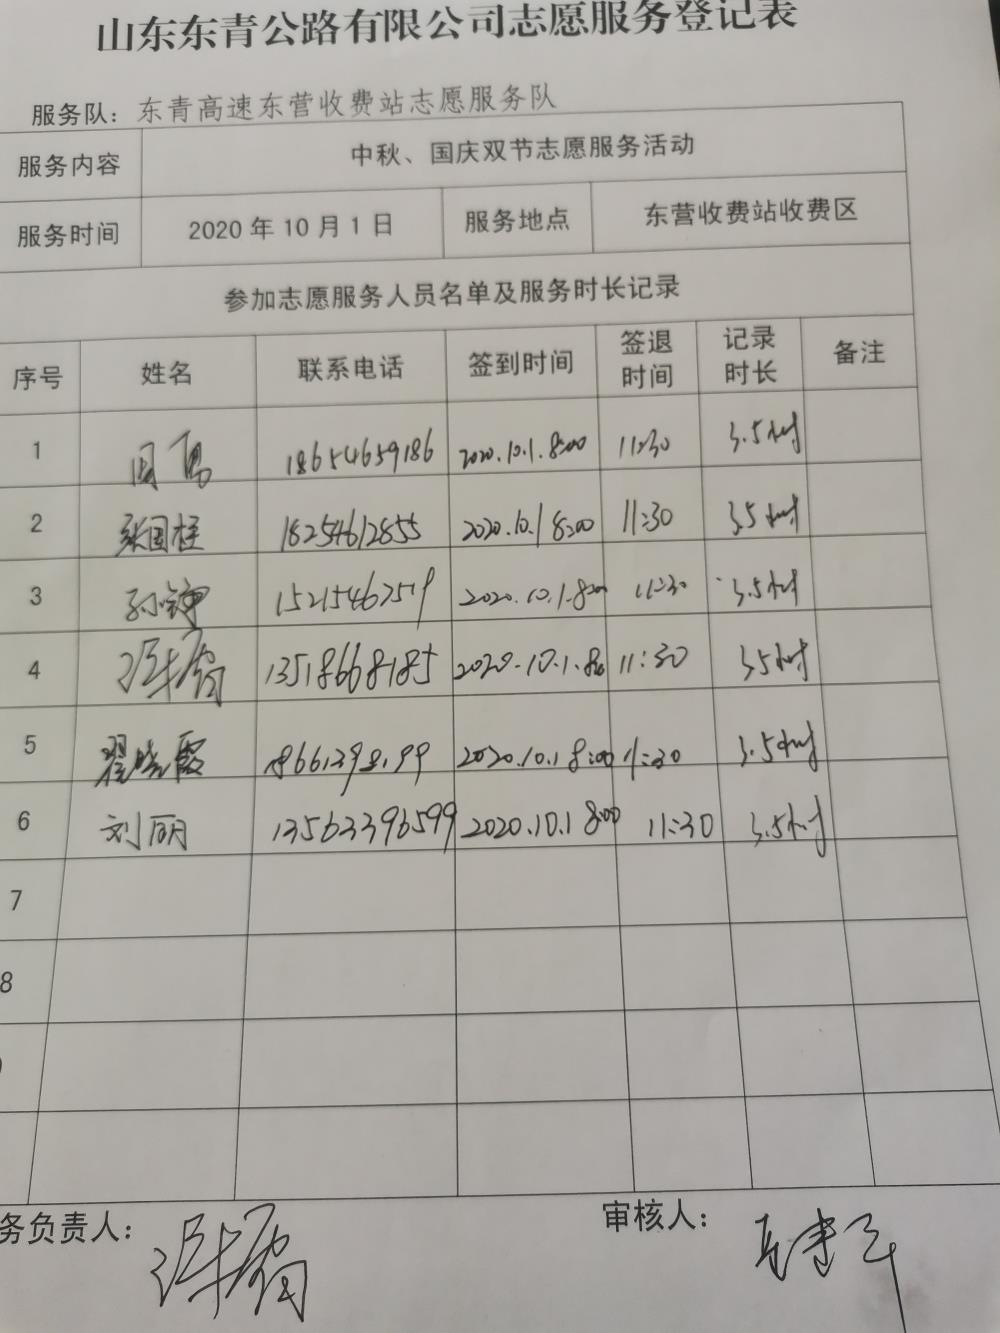 山东东青公路有限公司志愿服务登记表
服务队：东青高速东营收费站志愿服务队
服务内容 中秋、国庆双节志愿服务活动
服务时间 2020年10月1日 服务地点 东营收费站收费区
参加志愿服务人员名单及服务时长记录
序号 姓名 联系电话 签到时间 签退时间 记录时长 备注
1 周 18654659186 2020.10.1.8:00 11:30 3.5小时
2 张国柱 18254612855 2020.10.1 8:00 11:30 3.5小时
3 孙 2020.10.1.8:00 11:30 3.5小时
4 13518668185 2020.10.1.8:00 11:30 3.5小时
5 翟晓霞 2020.10.1 8:00 11:30 3.5小时
6 刘丽 13563396599 2020.10.1 8:00 11:30 3.5小时
7
8
务负责人： 审核人：